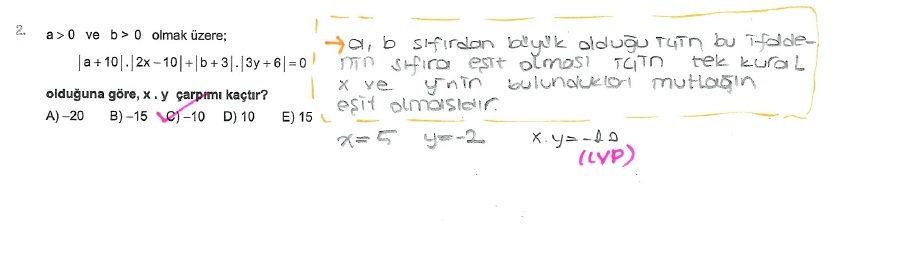 2. a > 0 ve b > 0 olmak üzere;
|a + 10|.|2x − 10| + |b + 3|.|3y + 6| = 0
olduğuna göre, x . y çarpımı kaçtır?
A) −20 B) −15 C) −10 D) 10 E) 15
→ a, b sıfırdan büyük olduğu için bu ifade-
nin sıfıra eşit olması için tek kural
x ve y'nin bulundukları mutlağın
eşit olmasıdır.
x = 5 y = -2 x.y = -10
(CVP)